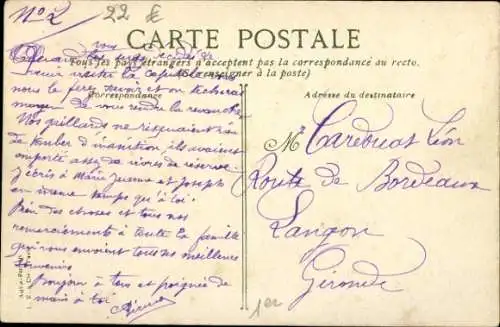 No 2
22 £
CARTE POSTALE
Tous les pays étrangers n'acceptent pas la correspondance au recto.
(Se renseigner à la poste)
Correspondance
Adresse du destinataire
vous
venir visiter la capitale
nous le fers savoir et on tacherai
moyen de vous rendre la revanche
Nos gaillards ne risquaient
de tomber d'inanition, ils avaient
emporté assez de vivres de réserve
J'écris à Marie Jeanne et Joseph
en même temps qu'à toi.
Bien des choses et tous nos
remerciements à toute la famille
qui nous envoient tous ses meilleurs
souvenirs
Bonjour à tous et poignée de
main à toi
M Carebuat Léon
Route de Bordeaux
Langon
Gironde